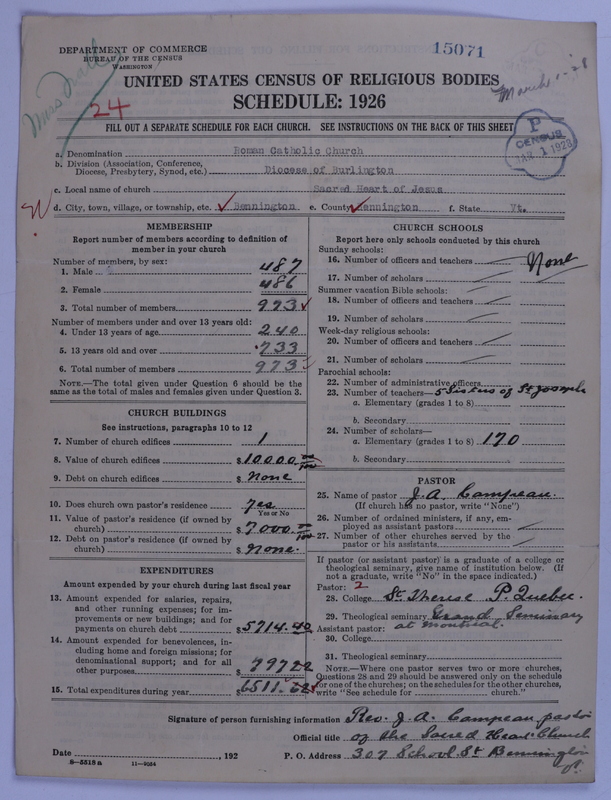 DEPARTMENT OF COMMERCE
BUREAU OF THE CENSUS
WASHINGTON
15071
UNITED STATES CENSUS OF RELIGIOUS BODIES
SCHEDULE: 1926
24
March
P
CENSUS
1 1928
FILL OUT A SEPARATE SCHEDULE FOR EACH CHURCH. SEE INSTRUCTIONS ON THE BACK OF THIS SHEET
a. Denomination Roman Catholic Church
b. Division (Association, Conference, Diocese, Presbytery, Synod, etc.) Diocese of Burlington
c. Local name of church Sacred Heart of Jesus
d. City, town, village, or township, etc. Bennington e. County Bennington f. State Vt.
MEMBERSHIP
Report number of members according to definition of
member in your church
Number of members, by sex:
1. Male 487
2. Female 486
3. Total number of members 973
Number of members under and over 13 years old:
4. Under 13 years of age 240
5. 13 years old and over 733
6. Total number of members 973
NOTE.—The total given under Question 6 should be the
same as the total of males and females given under Question 3.
CHURCH BUILDINGS
See instructions, paragraphs 10 to 12
7. Number of church edifices 1
8. Value of church edifices $ 10000.00/100
9. Debt on church edifices $ None
10. Does church own pastor's residence yes
Yes or No
11. Value of pastor's residence (if owned by
church) $ 7000.00/100
12. Debt on pastor's residence (if owned by
church) $ None.
EXPENDITURES
Amount expended by your church during last fiscal year
13. Amount expended for salaries, repairs,
and other running expenses; for improvements
or new buildings; and for
payments on church debt $ 5714.40
14. Amount expended for benevolences, including
home and foreign missions; for
denominational support; and for all
other purposes $ 797 22
15. Total expenditures during year $ 6511.62
CHURCH SCHOOLS
Report here only schools conducted by this church
Sunday schools:
16. Number of officers and teachers None
17. Number of scholars
Summer vacation Bible schools:
18. Number of officers and teachers
19. Number of scholars
Week-day religious schools:
20. Number of officers and teachers
21. Number of scholars
Parochial schools:
22. Number of administrative officers
23. Number of teachers— 5 Sisters of St Joseph
a. Elementary (grades 1 to 8)
b. Secondary
24. Number of scholars—
a. Elementary (grades 1 to 8) 170
b. Secondary
PASTOR
25. Name of pastor J. A. Campeau.
(If church has no pastor, write "None")
26. Number of ordained ministers, if any, employed
as assistant pastors
27. Number of other churches served by the
pastor or his assistants
If pastor (or assistant pastor) is a graduate of a college or
theological seminary, give name of institution below. (If
not a graduate, write "No" in the space indicated.)
Pastor: 2
28. College St. Therese P. Quebec.
29. Theological seminary Grand Seminary
Assistant pastor: at Montreal.
30. College
31. Theological seminary
NOTE.—Where one pastor serves two or more churches,
Questions 28 and 29 should be answered only on the schedule
for one of the churches; on the schedules for the other churches,
write "See schedule for ........ church."
Signature of person furnishing information Rev. J. A. Campeau pastor
Official title of the Sacred Heart Church
Date , 192 P. O. Address 307 School St Bennington
Vt.
8—5518 a 11—9054